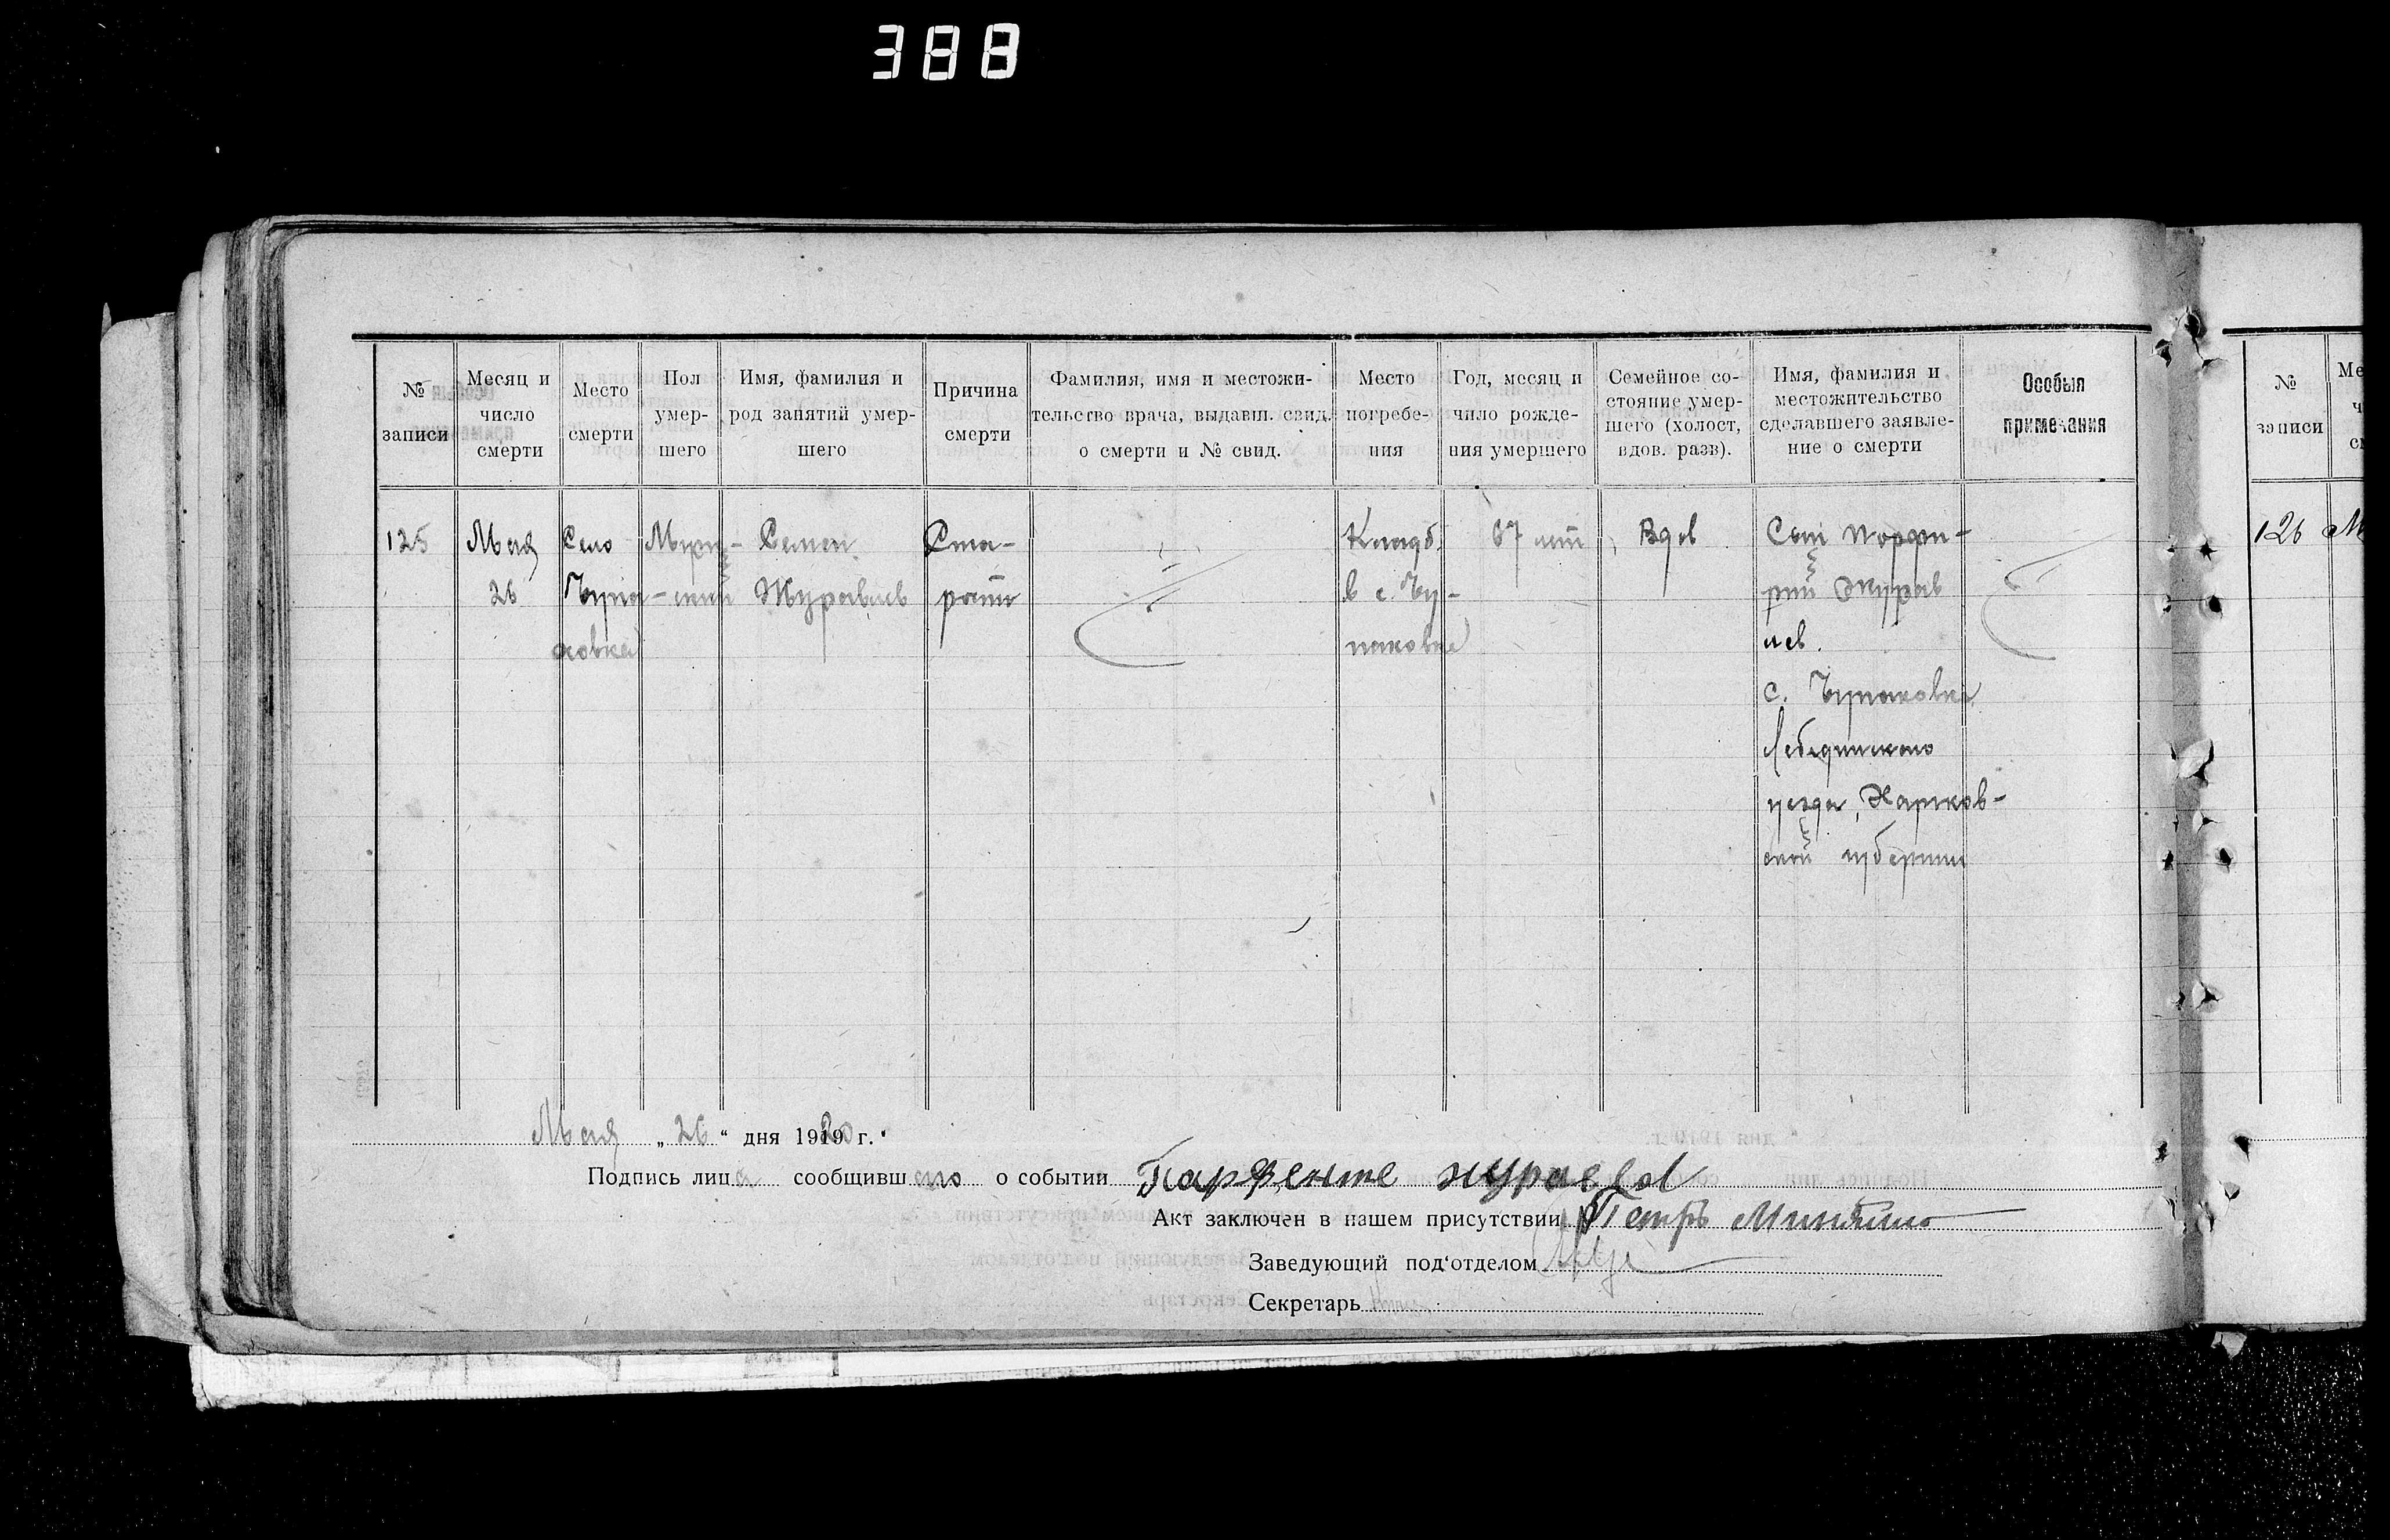 388
№ записи
Месяц и число смерти
Место смерти
Пол умер-
шего
Имя, фамилия и
род занятий умер-
шего
Причина смерти
Фамилия, имя и местожи-
тельство врача, выдавш. свид.
о смерти и № свид.
Место
погребе-
ния
Год, месяц и
число рожде-
ния умершего
Семейное со-
стояние умер-
шего (холост,
вдов. разв).
Имя, фамилия и
местожительство
сделавшего заявле-
ние о смерти
Особыя
примечания
125
Мая
26
Село
Чупа-
ховка
Муж-
ский
Семен
Журавлев
Ста-
рости
Кладб.
в с. Чу-
паховке
67 лет
Вдов
Сын Порфи-
рий Журав
лев.
с. Чупаховка
Лебединского
уезда, Харков-
ской губернии
Мая „26“ дня 1920 г.
Подпись лица сообщившего о событии журавел
Акт заключен в нашем присутствии Петръ
Заведующий под'отделом
Секретарь
№
записи
126